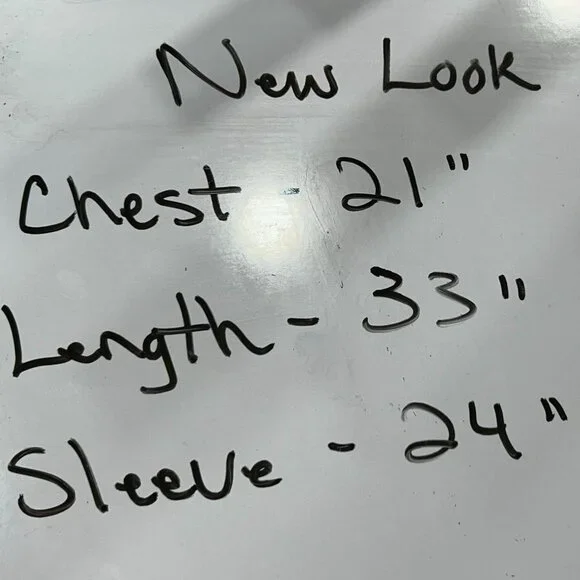 New Look
Chest - 21"
Length - 33"
Sleeve - 24"